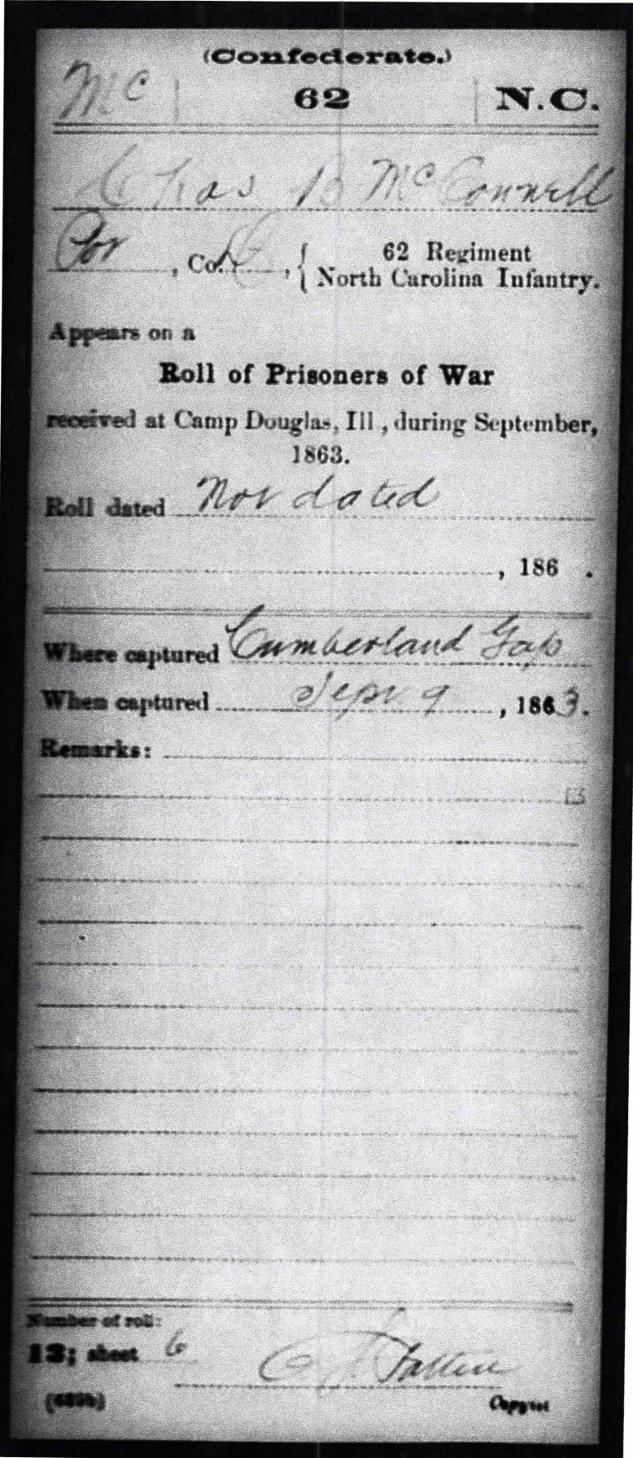 (Confederate.)
Mc | 62 | N.C.
Chas B McConnell
Cor, Co., { 62 Regiment
North Carolina Infantry.
Appears on a
Roll of Prisoners of War
received at Camp Douglas, Ill, during September,
1863.
Roll dated Not dated
, 186 .
Where captured Cumberland Gap
When captured Sept 9, 1863.
Remarks:
13
Number of roll:
12; sheet 6
Copyist